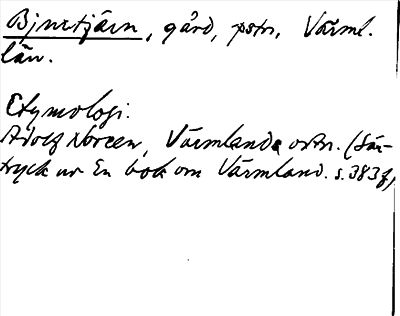 Bjurtjärn, gård, pstn, Värml.
län.
Etymologi:
Adolf Noreen, Värmlands ortn. (Sär-
tryck ur En bok om Värmland. s. 383f)